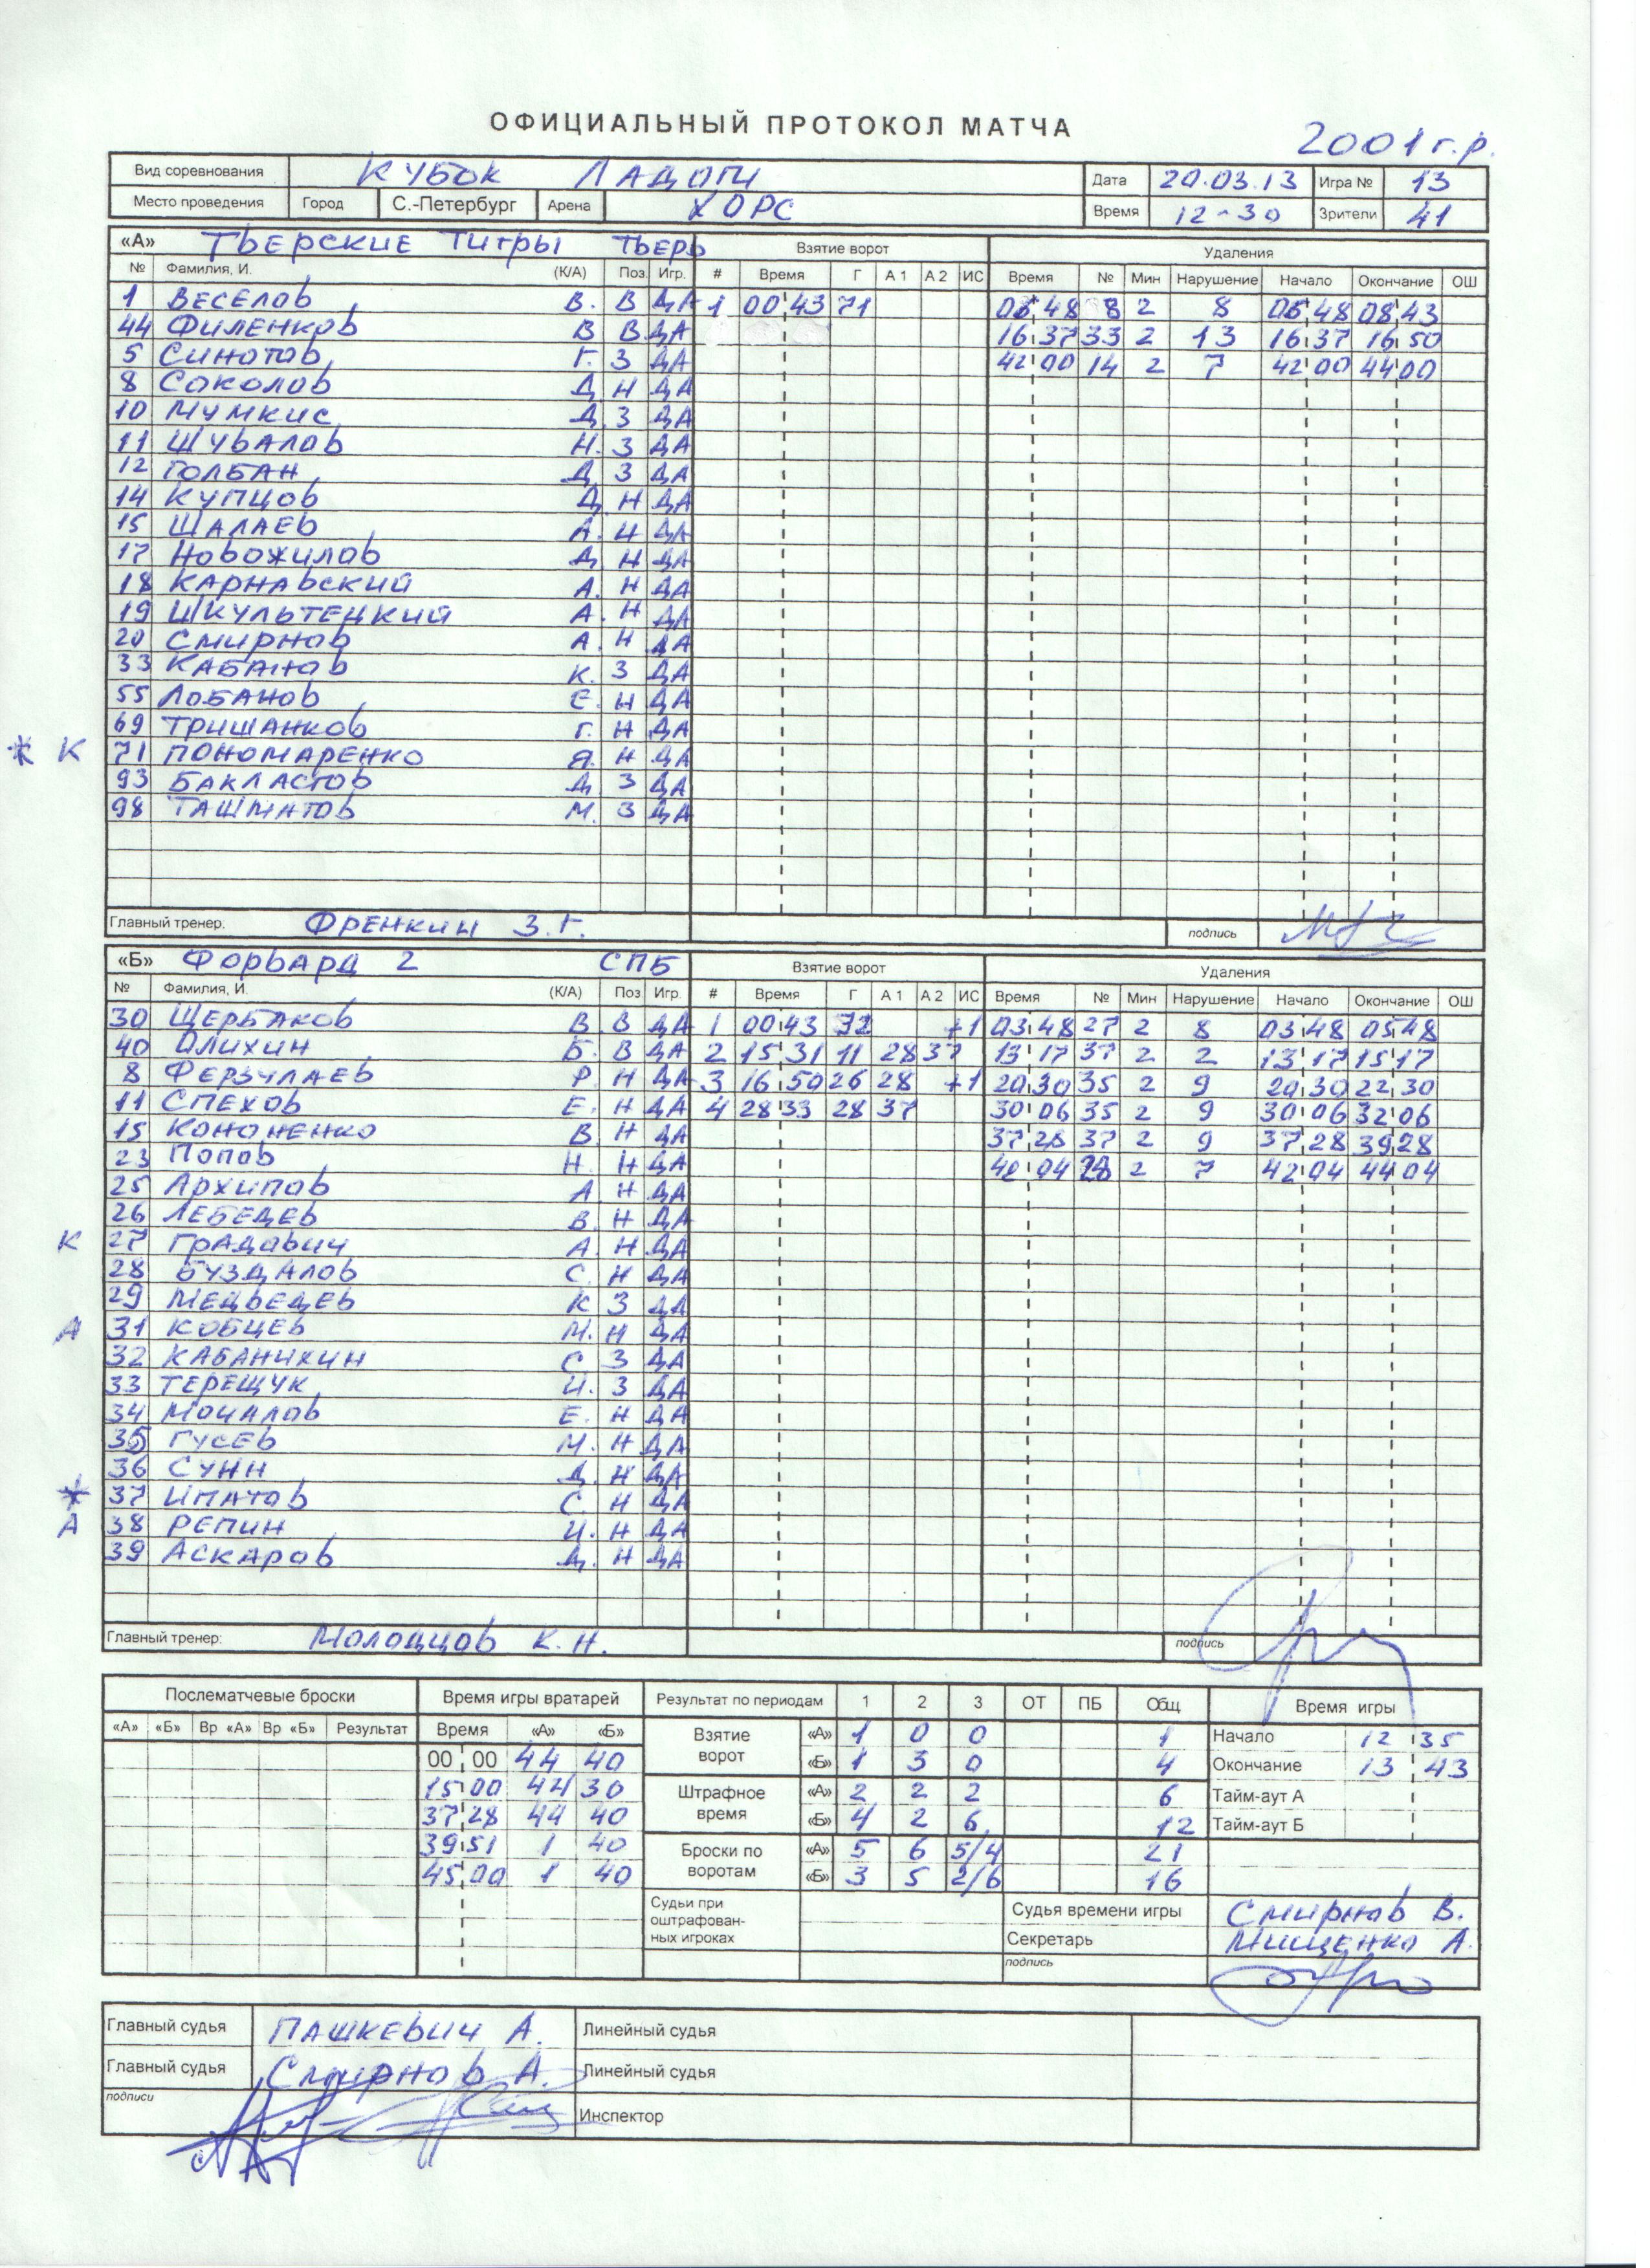 ОФИЦИАЛЬНЫЙ ПРОТОКОЛ МАТЧА
2001 г.р.
Вид соревнования КУБОК ЛАДОГИ Дата 20.03.13 Игра № 13
Место проведения Город С.-Петербург Арена ХОРС Время 12-30 Зрители 41
«А» ТВЕРСКИЕ ТИГРЫ ТВЕРЬ Взятие ворот Удаления
№ Фамилия, И. (К/А) Поз. Игр. # Время Г А 1 А 2 ИС Время № Мин Нарушение Начало Окончание ОШ
1 ВЕСЕЛОВ В. В ДА 1 00 43 71 06 48 8 2 8 06 48 08 43
44 ФИЛЕНКОВ В В ДА 16 37 33 2 13 16 37 16 50
5 СИНОТОВ Г. З ДА 42 00 14 2 7 42 00 44 00
8 СОКОЛОВ Д Н ДА
10 МУМКИС Д. З ДА
11 ШУВАЛОВ Н. З ДА
12 ГОЛБАН Д З ДА
14 КУПЦОВ Д Н ДА
15 ШАЛАЕВ А. Н ДА
17 НОВОЖИЛОВ Д Н ДА
18 КАРНАВСКИЙ А. Н ДА
19 ШКУЛЬТЕЦКИЙ А. Н ДА
20 СМИРНОВ А. Н ДА
33 КАБАНОВ К. З ДА
55 ЛОБАНОВ Е. Н ДА
69 ТРИШАНКОВ Г. Н ДА
* К 71 ПОНОМАРЕНКО Я. Н ДА
93 БАКЛАСТОВ Д З ДА
98 ТАШМАТОВ М. З ДА
Главный тренер: ФРЕНКИН З.Г. подпись
«Б» ФОРВАРД 2 СПБ Взятие ворот Удаления
№ Фамилия, И. (К/А) Поз Игр. # Время Г А 1 А 2 ИС Время № Мин Нарушение Начало Окончание ОШ
30 ЩЕРБАКОВ В. В ДА 1 00 43 32 +1 03 48 27 2 8 03 48 05 48
40 АЛИХИН Б. В ДА 2 15 31 11 28 37 13 17 37 2 2 13 17 15 17
8 ФЕРЗУЛАЕВ Р. Н ДА 3 16 50 26 28 +1 20 30 35 2 9 20 30 22 30
11 СПЕХОВ Е. Н ДА 4 28 33 28 37 30 06 35 2 9 30 06 32 06
15 КОНОНЕНКО В Н ДА 37 28 37 2 9 37 28 39 28
23 ПОПОВ Н. Н ДА 42 04 28 2 7 42 04 44 04
25 АРХИПОВ А Н ДА
26 ЛЕБЕДЕВ В. Н ДА
К 27 ГРАДОВИЧ А. Н ДА
28 БУЗДАЛОВ С. Н ДА
29 МЕДВЕДЕВ К З ДА
А 31 КОБЦЕВ М. Н ДА
32 КАБАНИХИН С. З ДА
33 ТЕРЕЩУК И. З ДА
34 МОЧАЛОВ Е. Н ДА
35 ГУСЕВ М. Н ДА
36 СУНН Д. Н ДА
* 37 ИПАТОВ С. Н ДА
А 38 РЕПИН И. Н ДА
39 АСКАРОВ Д. Н ДА
Главный тренер: МОЛОДЦОВ К.Н. подпись
Послематчевые броски Время игры вратарей Результат по периодам 1 2 3 ОТ ПБ Общ Время игры
«А» «Б» Вр «А» Вр «Б» Результат Время «А» «Б» Взятие ворот «А» 1 0 0 1 Начало 12 35
00 00 44 40 «Б» 1 3 0 4 Окончание 13 43
15 00 44 30 Штрафное время «А» 2 2 2 6 Тайм-аут А
37 28 44 40 «Б» 4 2 6 12 Тайм-аут Б
39 51 1 40 Броски по воротам «А» 5 6 5/4 21
45 00 1 40 «Б» 3 5 2/6 16
Судьи при оштрафован- Судья времени игры СМИРНОВ В.
ных игроках Секретарь МИЩЕНКО А.
подпись
Главный судья ПАШКЕВИЧ А. Линейный судья
Главный судья СМИРНОВ А. Линейный судья
подписи Инспектор